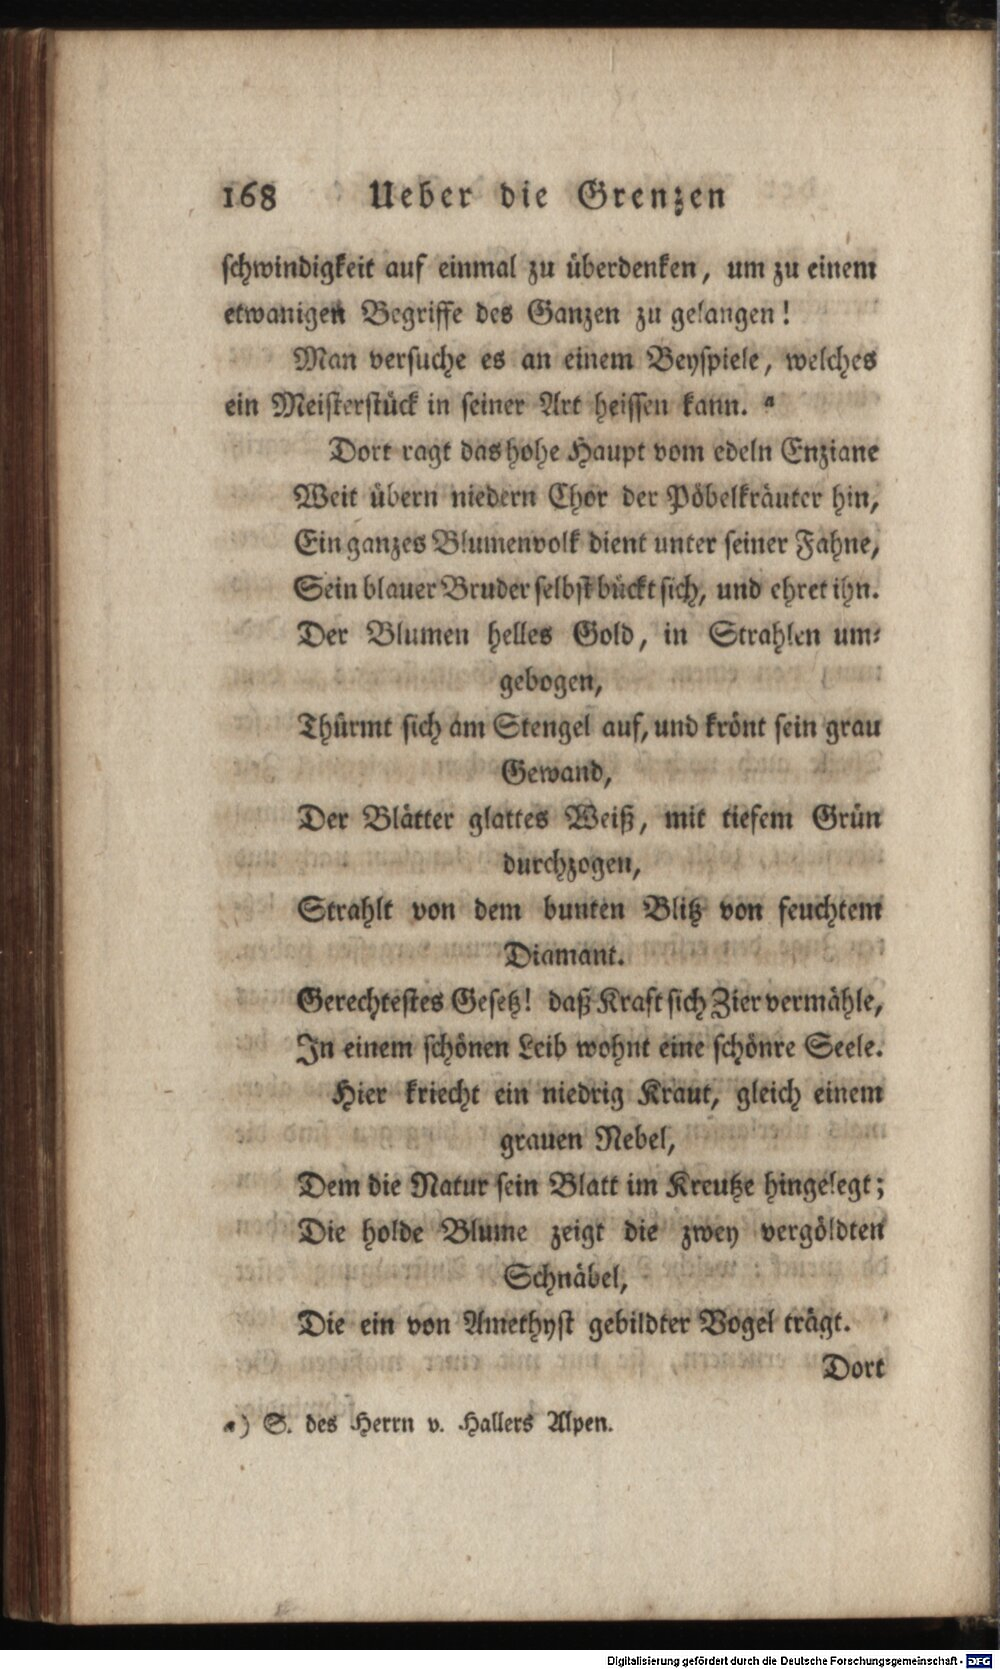 168 Ueber die Grenzen
schwindigkeit auf einmal zu überdenken, um zu einem
etwanigen Begriffe des Ganzen zu gelangen!
Man versuche es an einem Beyspiele, welches
ein Meisterstück in seiner Art heissen kann. a
Dort ragt das hohe Haupt vom edeln Enziane
Weit übern niedern Chor der Pöbelkräuter hin,
Ein ganzes Blumenvolk dient unter seiner Fahne,
Sein blauer Bruder selbst bückt sich, und ehret ihn.
Der Blumen helles Gold, in Strahlen um-
gebogen,
Thürmt sich am Stengel auf, und krönt sein grau
Gewand,
Der Blätter glattes Weiß, mit tiefem Grün
durchzogen,
Strahlt von dem bunten Blitz von feuchtem
Diamant.
Gerechtestes Gesetz! daß Kraft sich Zier vermähle,
In einem schönen Leib wohnt eine schönre Seele.
Hier kriecht ein niedrig Kraut, gleich einem
grauen Nebel,
Dem die Natur sein Blatt im Kreutze hingelegt;
Die holde Blume zeigt die zwey vergöldten
Schnäbel,
Die ein von Amethyst gebildter Vogel trägt.
Dort
a) S. des Herrn v. Hallers Alpen.
Digitalisierung gefördert durch die Deutsche Forschungsgemeinschaft - DFG